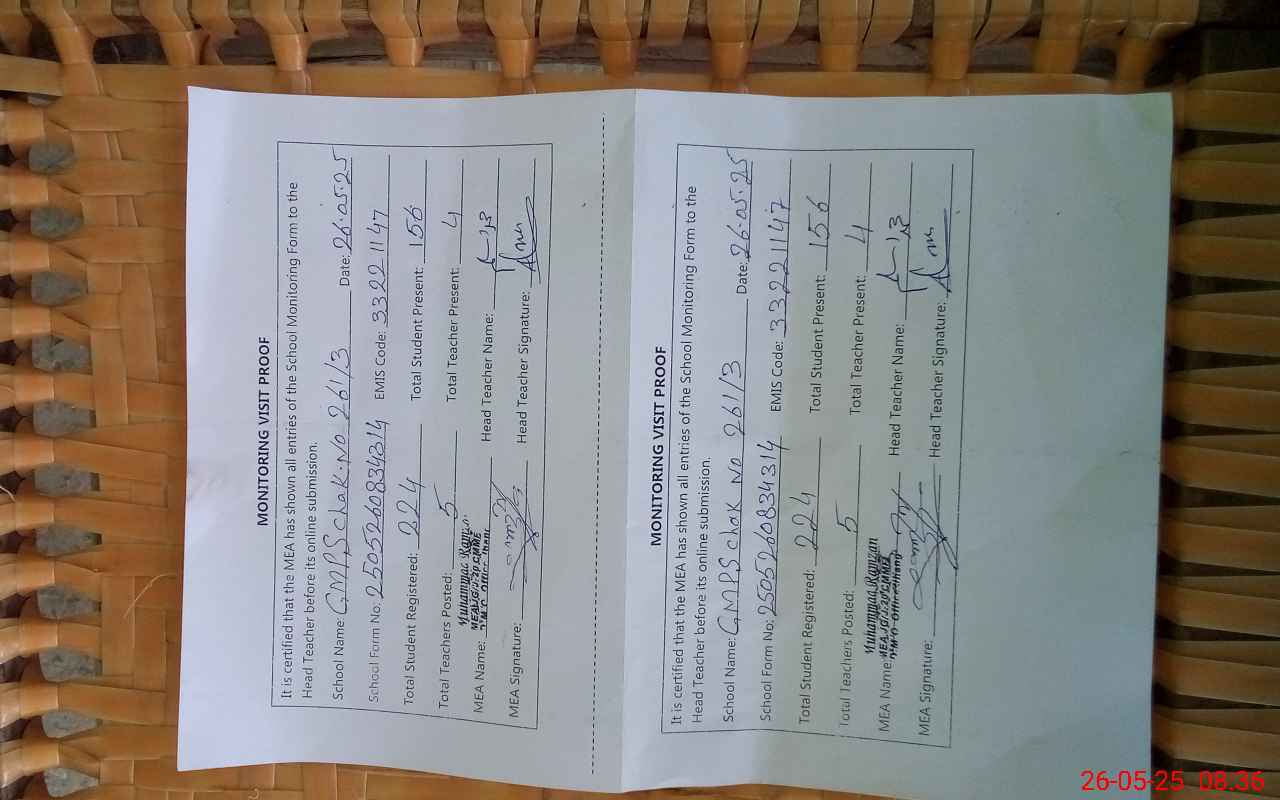 MONITORING VISIT PROOF
It is certified that the MEA has shown all entries of the School Monitoring Form to the
Head Teacher before its online submission.
School Name: GMPS Chak No 261/3 Date: 26.05.25
School Form No: 2505260834314 EMIS Code: 33221147
Total Student Registered: 224 Total Student Present: 156
Total Teachers Posted: 5 Total Teacher Present: 4
Muhammad Ramzan
MEA Name: Head Teacher Name:
MEA Signature: Head Teacher Signature:
MONITORING VISIT PROOF
It is certified that the MEA has shown all entries of the School Monitoring Form to the
Head Teacher before its online submission.
School Name: GMPS Chak No 261/3 Date: 26.05.25
School Form No: 2505260834314 EMIS Code: 33221147
Total Student Registered: 224 Total Student Present: 156
Total Teachers Posted: 5 Total Teacher Present: 4
Muhammad Ramzan
MEA Name: Head Teacher Name:
MEA Signature: Head Teacher Signature:
26-05-25 08:36